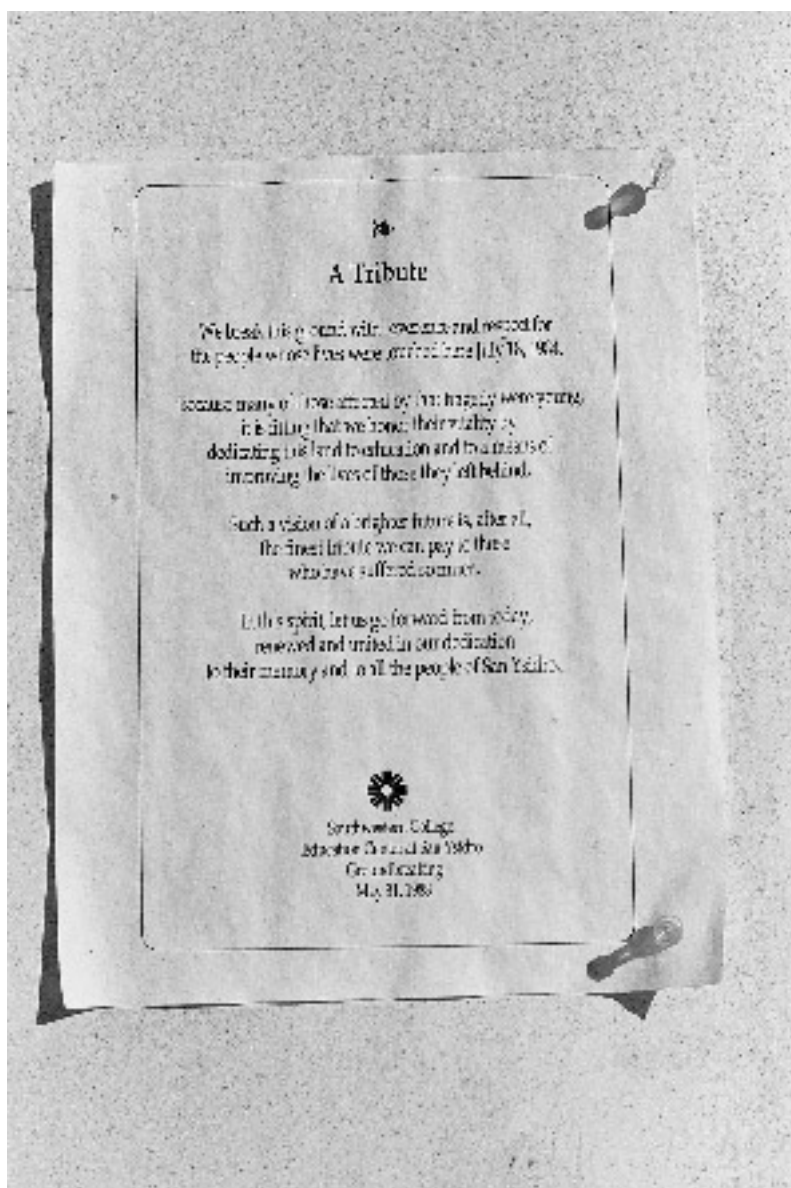 A Tribute
We break this ground with reverence and respect for
the people whose lives were touched here July 18, 1984.
Because many of those affected by that tragedy were young,
it is fitting that we honor their vitality by
dedicating this land to education and to a means of
improving the lives of those they left behind.
Such a vision of a brighter future is, after all,
the finest tribute we can pay to those
who have suffered sorrow.
In this spirit, let us go forward from today,
renewed and united in our dedication
to their memory and to all the people of San Ysidro.
Southwestern College
Education Center at San Ysidro
Groundbreaking
May 31,